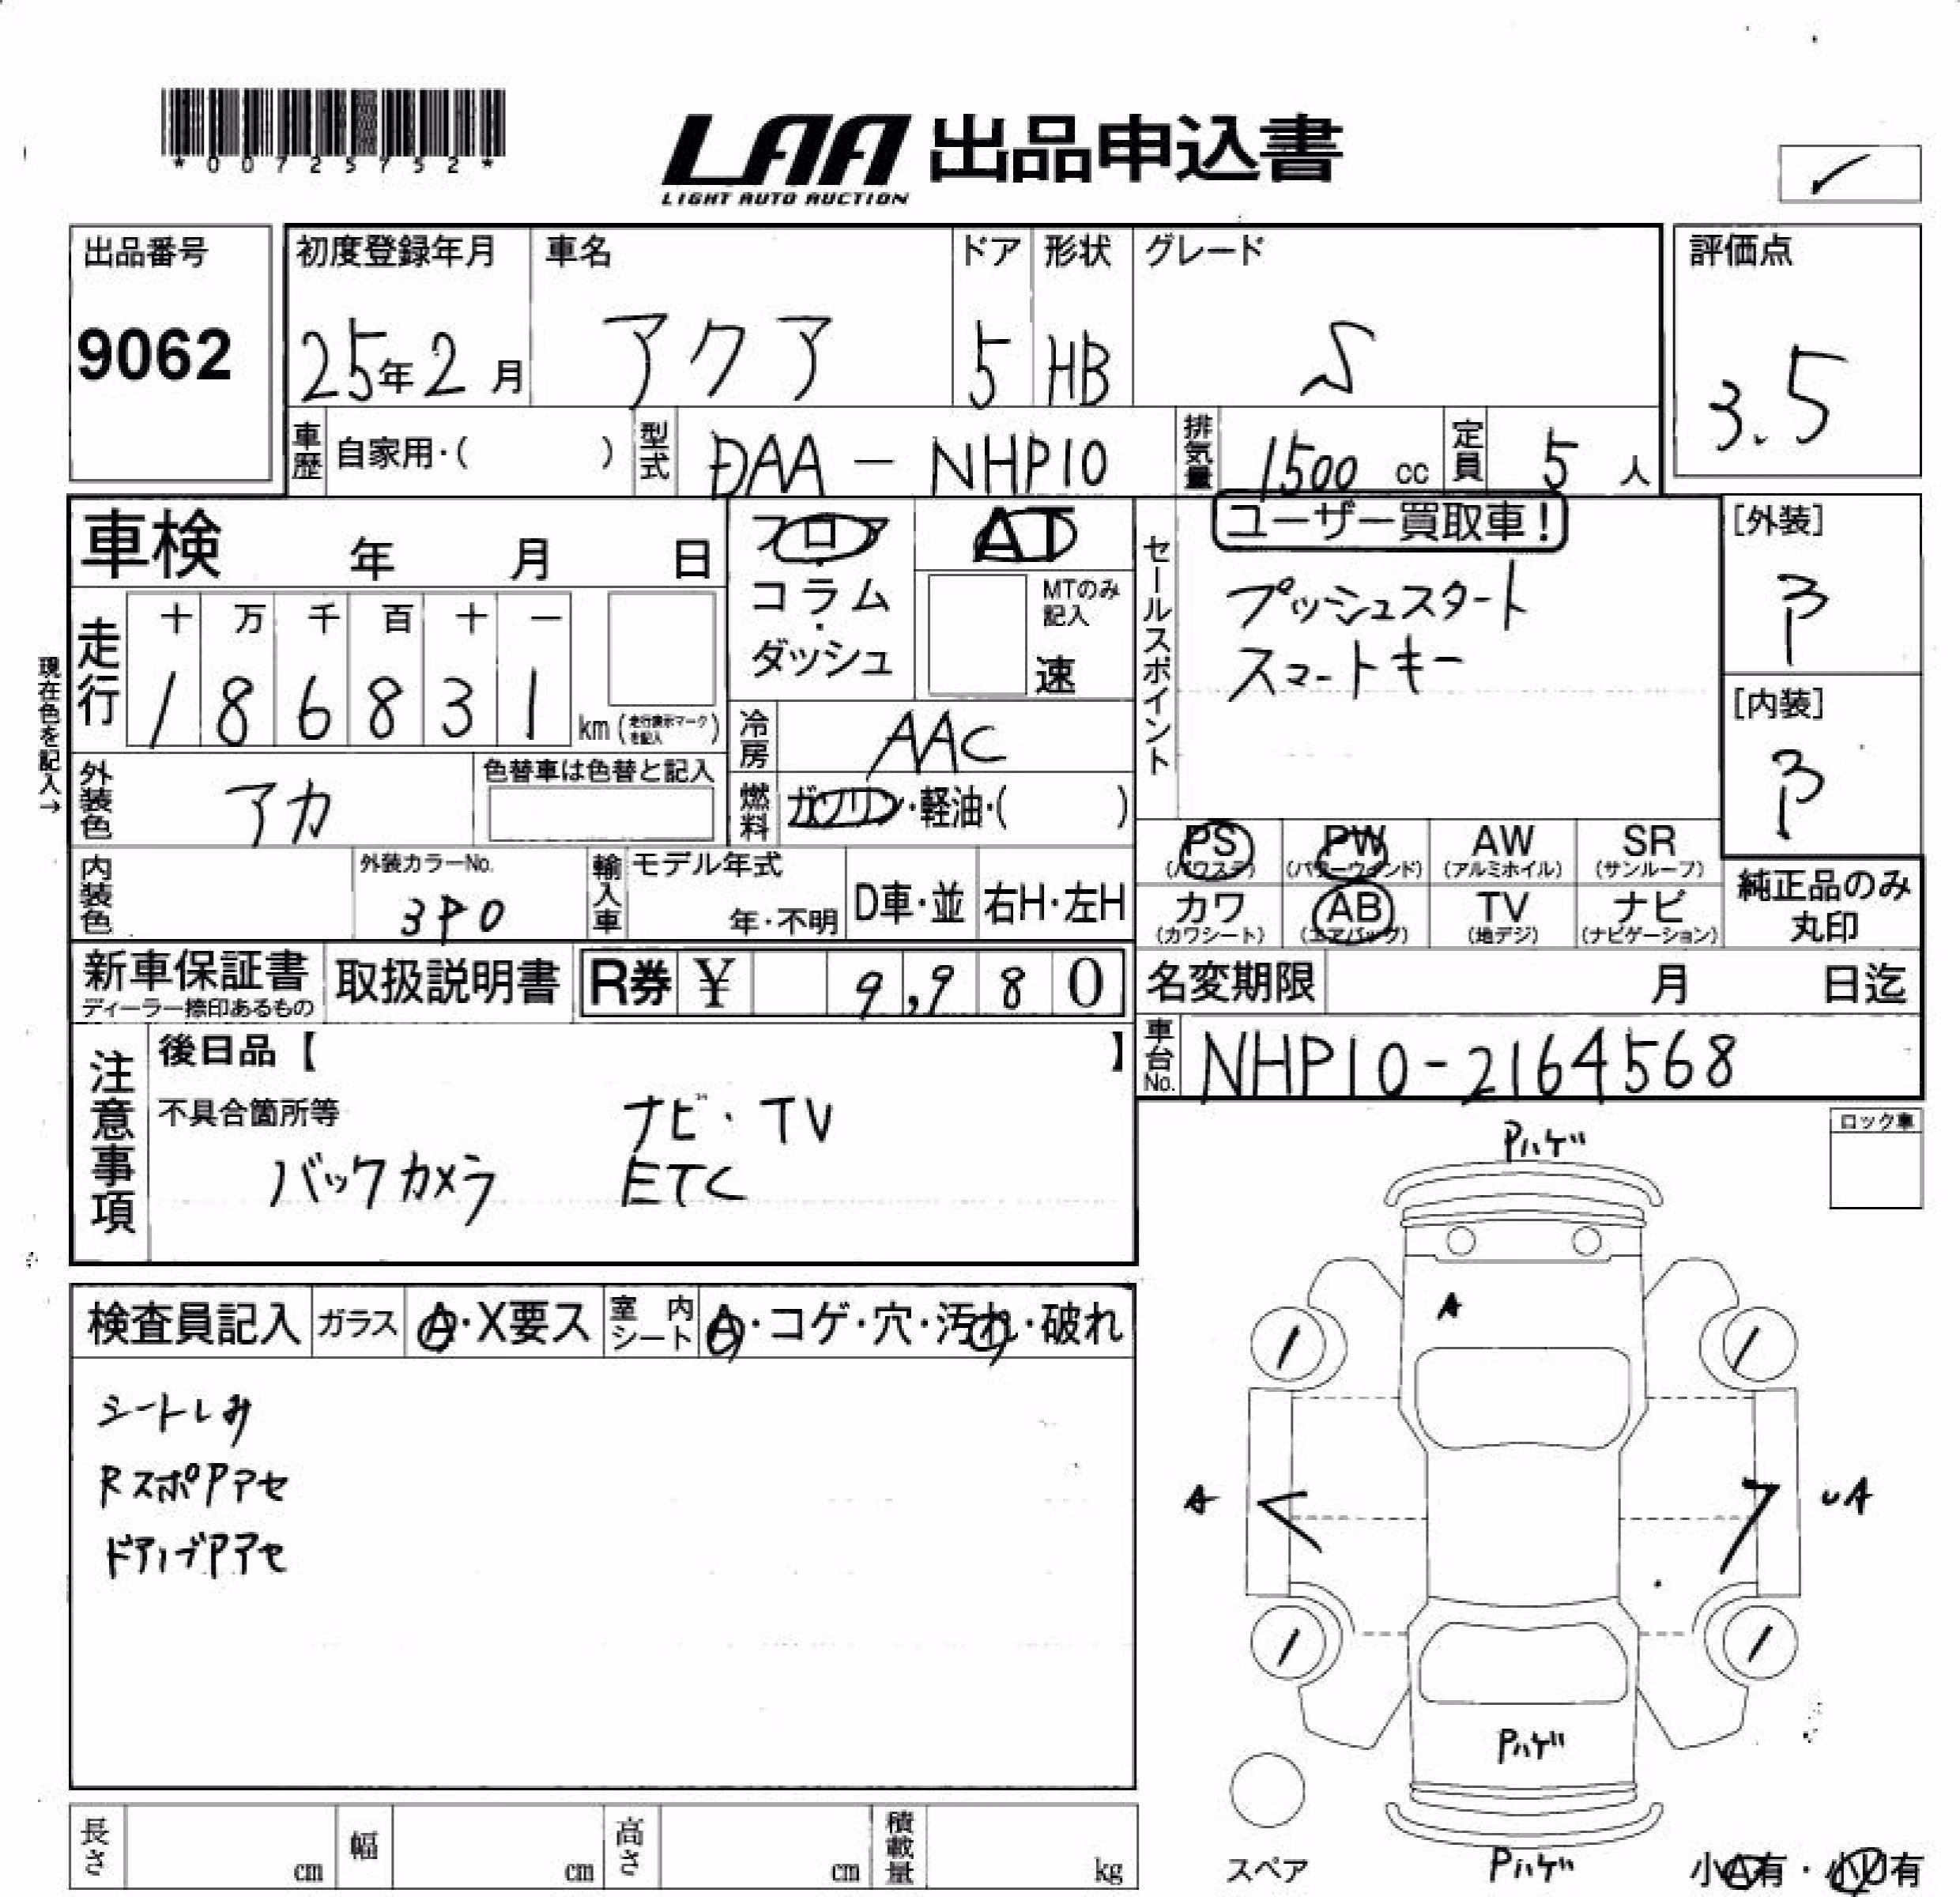 *00725752*
LAA 出品申込書
LIGHT AUTO AUCTION
出品番号
9062
初度登録年月
25年2月
車名
アクア
ドア
5
形状
HB
グレード
S
評価点
3.5
車歴 自家用・( )
型式 DAA - NHP10
排気量 1500 cc
定員 5 人
車検 年 月 日
フロア
コラム
・
ダッシュ
AT
MTのみ記入
速
セールスポイント
ユーザー買取車!
プッシュスタート
スマートキー
[外装]
B
[内装]
B
現在色を記入→
走行
十 万 千 百 十 一
1 8 6 8 3 1 km (走行表示マークを記入)
冷房 AAC
外装色 アカ
色替車は色替と記入
燃料 ガソリン・軽油・( )
PS (パワステ)
PW (パワーウインド)
AW (アルミホイル)
SR (サンルーフ)
カワ (カワシート)
AB (エアバッグ)
TV (地デジ)
ナビ (ナビゲーション)
純正品のみ
丸印
内装色
外装カラーNo.
3P0
輸入車
モデル年式
年・不明
D車・並
右H・左H
新車保証書
ディーラー捺印あるもの
取扱説明書
R券 ¥ 9,980
名変期限 月 日迄
車台No. NHP10-2164568
注意事項
後日品【 】
不具合箇所等
ナビ・TV
バックカメラ ETC
ロック車
Pハゲ
A
A
UA
Pハゲ
Pハゲ
スペア
小A有・小U有
検査員記入
ガラス A・X要ス
室内シート A・コゲ・穴・汚れ・破れ
シートしみ
RスポPアセ
ドアノブPアセ
長さ cm
幅 cm
高さ cm
積載量 kg